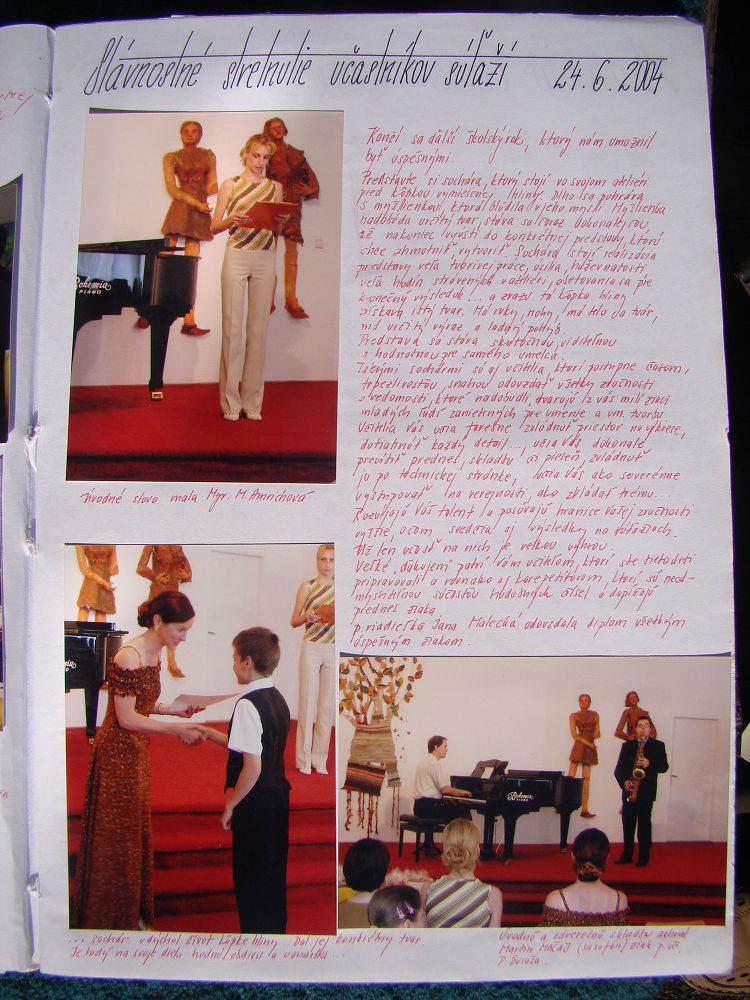 Slávnostné stretnutie účastníkov súťaží 24.6.2004
Končí sa ďalší školský rok, ktorý nám umožnil
byť úspešnými.
Predstavte si sochára, ktorý stojí vo svojom ateliéri
pred kôpkou vymiesenej hliny. Dlho sa pohráva
s myšlienkou, ktorá blúdila v jeho mysli. Myšlienka
nadobúda určitý tvar, stáva sa čoraz dokonalejšou,
až nakoniec vyústi do konkrétnej predstavy, ktorú
chce zhmotniť, vytvoriť. Sochára stojí realizácia
predstavy veľa tvorivej práce, úsilia, húževnatosti
veľa hodín strávených v ateliéri, ošetrovania sa pre
konečný výsledok... a zrazu tá kôpka hliny
získava istý tvar. Má ruky, nohy, má telo a tvár,
má určitý výraz a ladný pohyb.
Predstava sa stáva skutočnou, viditeľnou
a hodnotnou pre samého umelca.
Takými sochármi sú aj učitelia, ktorí postupne časom,
trpezlivosťou, snahou odovzdať všetky zručnosti
a vedomosti, ktoré nadobudli, tvarujú z vás milí žiaci
mladých ľudí zanietených pre umenie a um. tvorbu.
Učitelia Vás učia farebne zvládnuť priestor na výkrese,
dotiahnuť každý detail,... učia Vás dokonale
precítiť prednes, skladbu či pieseň, zvládnuť
ju po technickej stránke, učia Vás ako suverénne
vystupovať na verejnosti, ako zvládať trému...
Rozvíjajú Váš talent a posúvajú hranice Vašej zručnosti
vyššie, o čom svedčia aj výsledky na súťažiach.
Už len účasť na nich je veľkou výhrou.
Veľké "ďakujem" patrí Vám učiteľom, ktorí ste tieto deti
pripravovali a rovnako aj korepetítorom, ktorí sú neod-
mysliteľnou súčasťou hudobných čísel a dopĺňajú
prednes žiaka.
p. riaditeľka Jana Malecká odovzdala diplom všetkým
úspešným žiakom.
Úvodné slovo mala Mgr. M. Amrichová
Bohemia
PIANO
Bohemia
... sochár vdýchol život kôpke hliny. Dal jej konkrétny tvar.
Je hrdý na svoje dielo hodné obdivu a uznania...
Úvodnú a záverečnú skladbu zahral
Martin MAČAJ (saxofón) žiak p. uč.
P. Ďuraša.